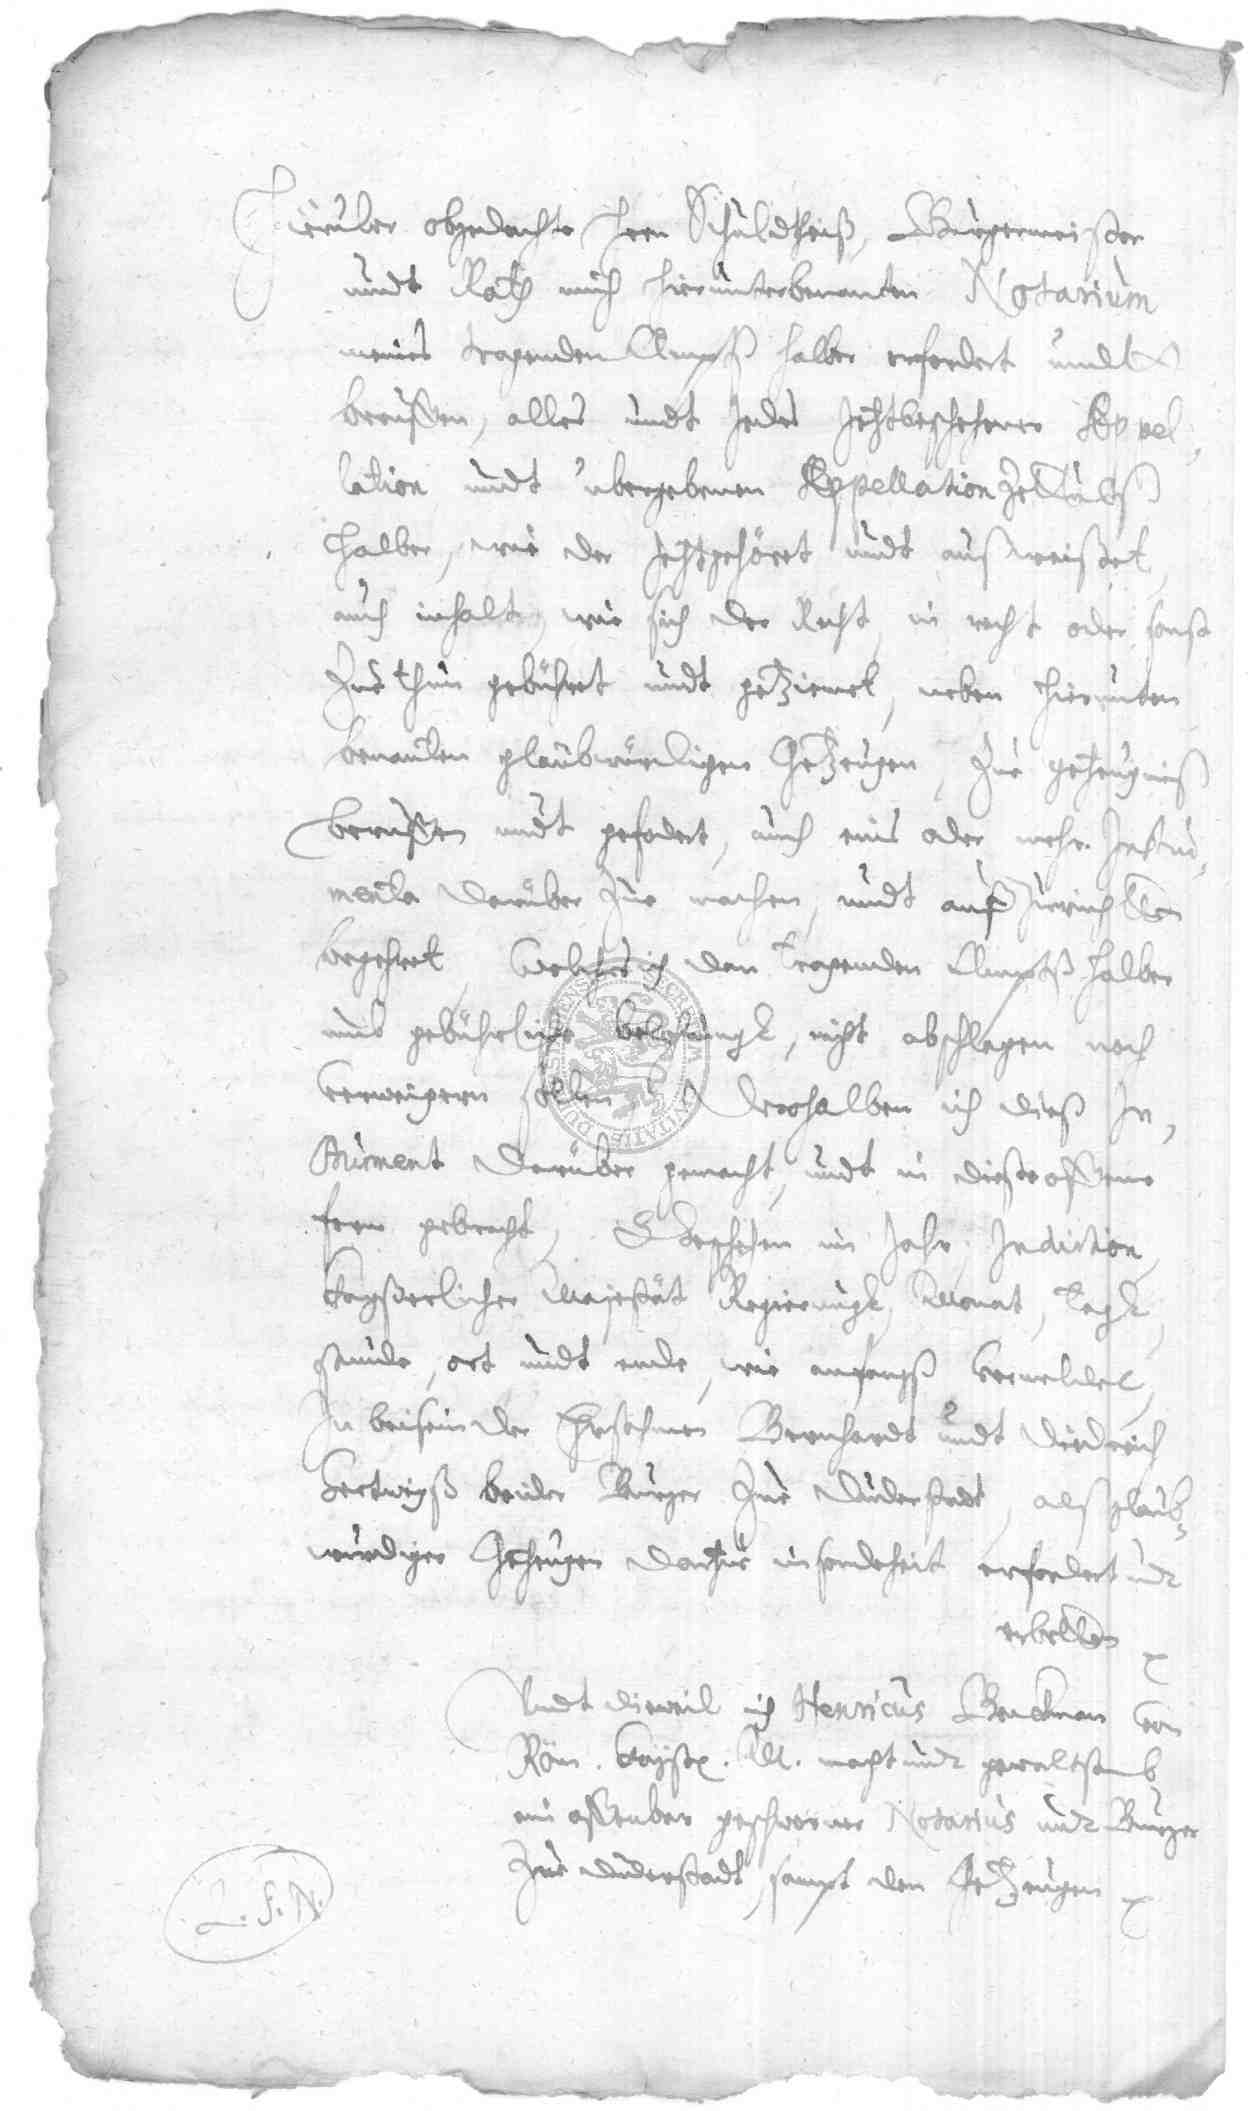 Hierüber obgedachte Hern Schuldtheiß, Bürgermeister
undt Rath mich hierunterbenanten Notarium
meines tragenden Ampts halber erfordert undt
beruffen, alles undt Jedes Jetztbeschehener Appel-
lation undt ubergebenen Appellation Zettulß
halber, wie der Jetztgehört undt außweißet,
auch inhalt, wie sich der Recht, in recht oder sonst
Zue thun gebührt undt geziemet, neben hierunten
benanten glaubwürdigen Getzeugen, Zue gezeugniß
beruffen undt gefodert, auch eins oder mehr Instru-
menta darüber Zue machen, undt auffzurichtten
begehret, Welches ich den tragenden Ampts halber
umb gebührliche belohnungk, nicht abschlagen noch
verweigern sollen, Derohalben ich dieß In-
strument darüber gemacht, undt in dieße offene
form gebracht, Geschehen im Jahr, Indiction,
Kayßerlicher Majestät Regierungk, Monat, tagk,
stunde, ort undt ende, wie anfangß vermeldet,
In beisein der Ersahmen Bernhardt undt Diedrich
Hertwigß beider Burger Zue Duderstadt, alß glaub-
würdiger Getzeugen dartzue insonderheit erfordert undt
erbetten
Undt dieweil ich Henricus Brackman von
Röm. Kayser. M. macht undt gewaltsamb
ein offenbar geschworner Notarius undt Burger
Zue Duderstadt, sampt den Getzeugen
L. S. N.